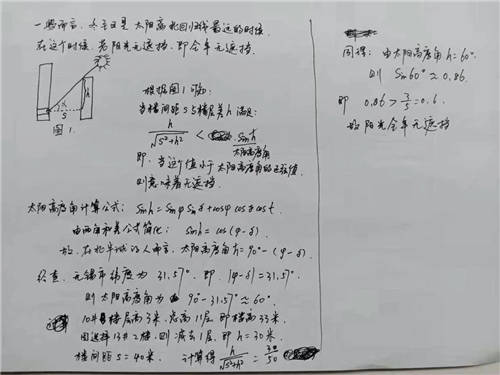 一般而言，冬至日是太阳离北回归线最远的时候
在这个时候，若阳光无遮挡，即全年无遮挡.
h
S
图1.
根据图1可知：
当楼间距S与楼层差h满足：
h/√(S²+h²) < sin h
太阳高度角
即，当这个值小于太阳高度角的正弦值，
则意味着无遮挡
太阳高度角计算公式： Sinh = Sinφ Sinδ + cosφ cosδ cost.
由两角和差公式简化： Sinh = cos(φ-δ)
故，在北半球的人而言，太阳高度角h=90°-(φ-δ)
经查，无锡市纬度为 31.57°. 即 |φ-δ|=31.57°.
则太阳高度角为 90°-31.57°≈60°.
10#楼层高3米，总高11层，即楼高33米.
因选择13#2楼，则减去1层，即h=30米
楼间距S=40米. 计算得 h/√(S²+h²) = 30/50
同理：由太阳高度角h=60°
则 Sin60°≈0.86
即 0.86 > 3/5 = 0.6.
故阳光全年无遮挡